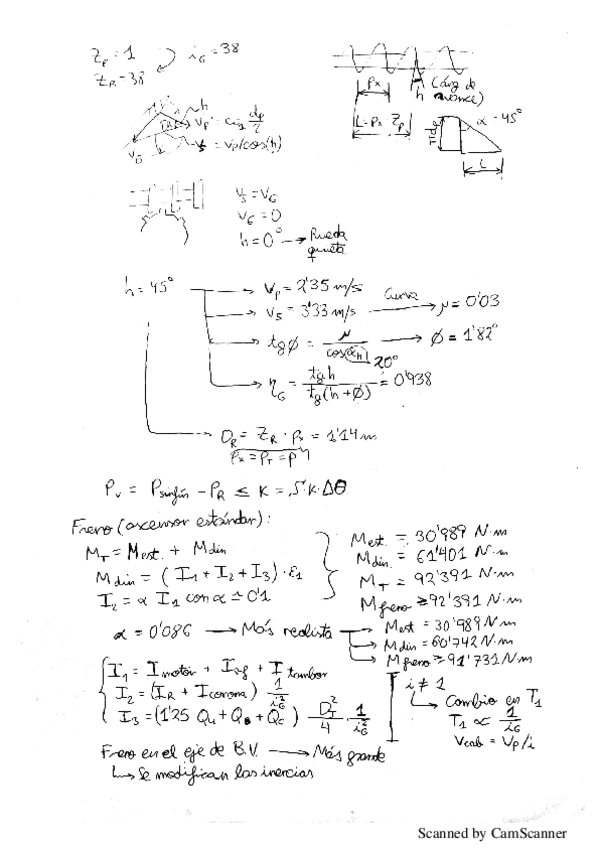 Zp = 1
ZR = 38
iG = 38
Px
h (áng de avance)
L = Px Zp
Πdp
α = 45°
L
h
Vp = ω1 dp/2
Vs = Vp/cos(h)
VG
Vs = VG
VG = 0
h = 0° → Rueda quieta
h = 45°
Vp = 2'35 m/s
Vs = 3'33 m/s Curva → μ = 0'03
tg ϕ = μ / cos αn → ϕ = 1'82°
20°
ηG = tg h / tg(h + ϕ) = 0'938
DR = ZR · Px = 1'14 m
Px = PT = P
Pv = Psinfín - PR ≤ K = S·K·Δθ
Freno (ascensor estándar):
MT = Mest. + Mdin
Mdin = (I1 + I2 + I3) · ε1
I2 = α I1 con α = 0'1
Mest. = 30'989 N·m
Mdin. = 61'401 N·m
MT = 92'391 N·m
Mfreno ≥ 92'391 N·m
α = 0'086 → Más realista
Mest = 30'989 N·m
Mdin = 60'742 N·m
Mfreno ≥ 91'731 N·m
I1 = Imotor + Isf + I tambor
I2 = (IR + Icorona) 1/iG²
I3 = (1'25 Qu + QB + Qc) DT²/4 · 1/iG²
i ≠ 1
Cambio en T1
T1 ∝ 1/iG
Vcab = Vp/i
Freno en el eje de B.V. → Más grande
↳ Se modifican las inercias
Scanned by CamScanner